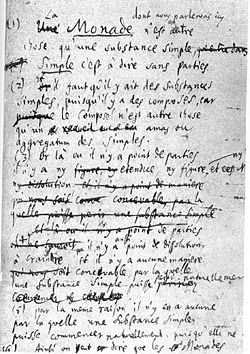 La dont nous parlerons icy
(1) Une Monade n'est autre
chose qu'une substance simple,
simple c'est à dire sans parties
(2) il faut qu'il y ait des substances
simples, puisqu'il y a des composés, car
le composé n'est autre chose
qu'un amas ou
aggregatum des simples.
(3) Or là où il n'y a point de parties
il n'y a ny etendue, ny figure, et
dissolution
nous soit concevable par la
quelle puisse perir une substance simple
(4) Et là où il n'y a point de parties
il n'y a point de dissolution
à craindre et il n'y a aucune maniere
soit concevable par la quelle
une substance simple puisse naturellement
(5) par la même raison il n'y en a aucune
par la quelle une substance simple
puisse commencer naturellement, puisqu'elle ne
(6) Ainsi on peut dire que les Monades